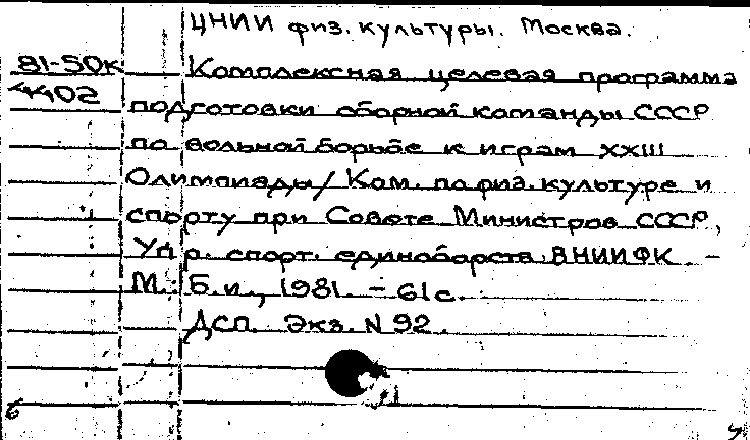 ЦНИИ физ. культуры. Москва.
81-50к
4402
Комплексная целевая программа
подготовки сборной команды СССР
по вольной борьбе к играм XXIII
Олимпиады/ Ком. по физ. культуре и
спорту при Совете Министров СССР,
Упр. спорт. единоборств. ВНИИФК. -
М.: Б.и., 1981. - 61с.
ДСП. Экз. N 92.